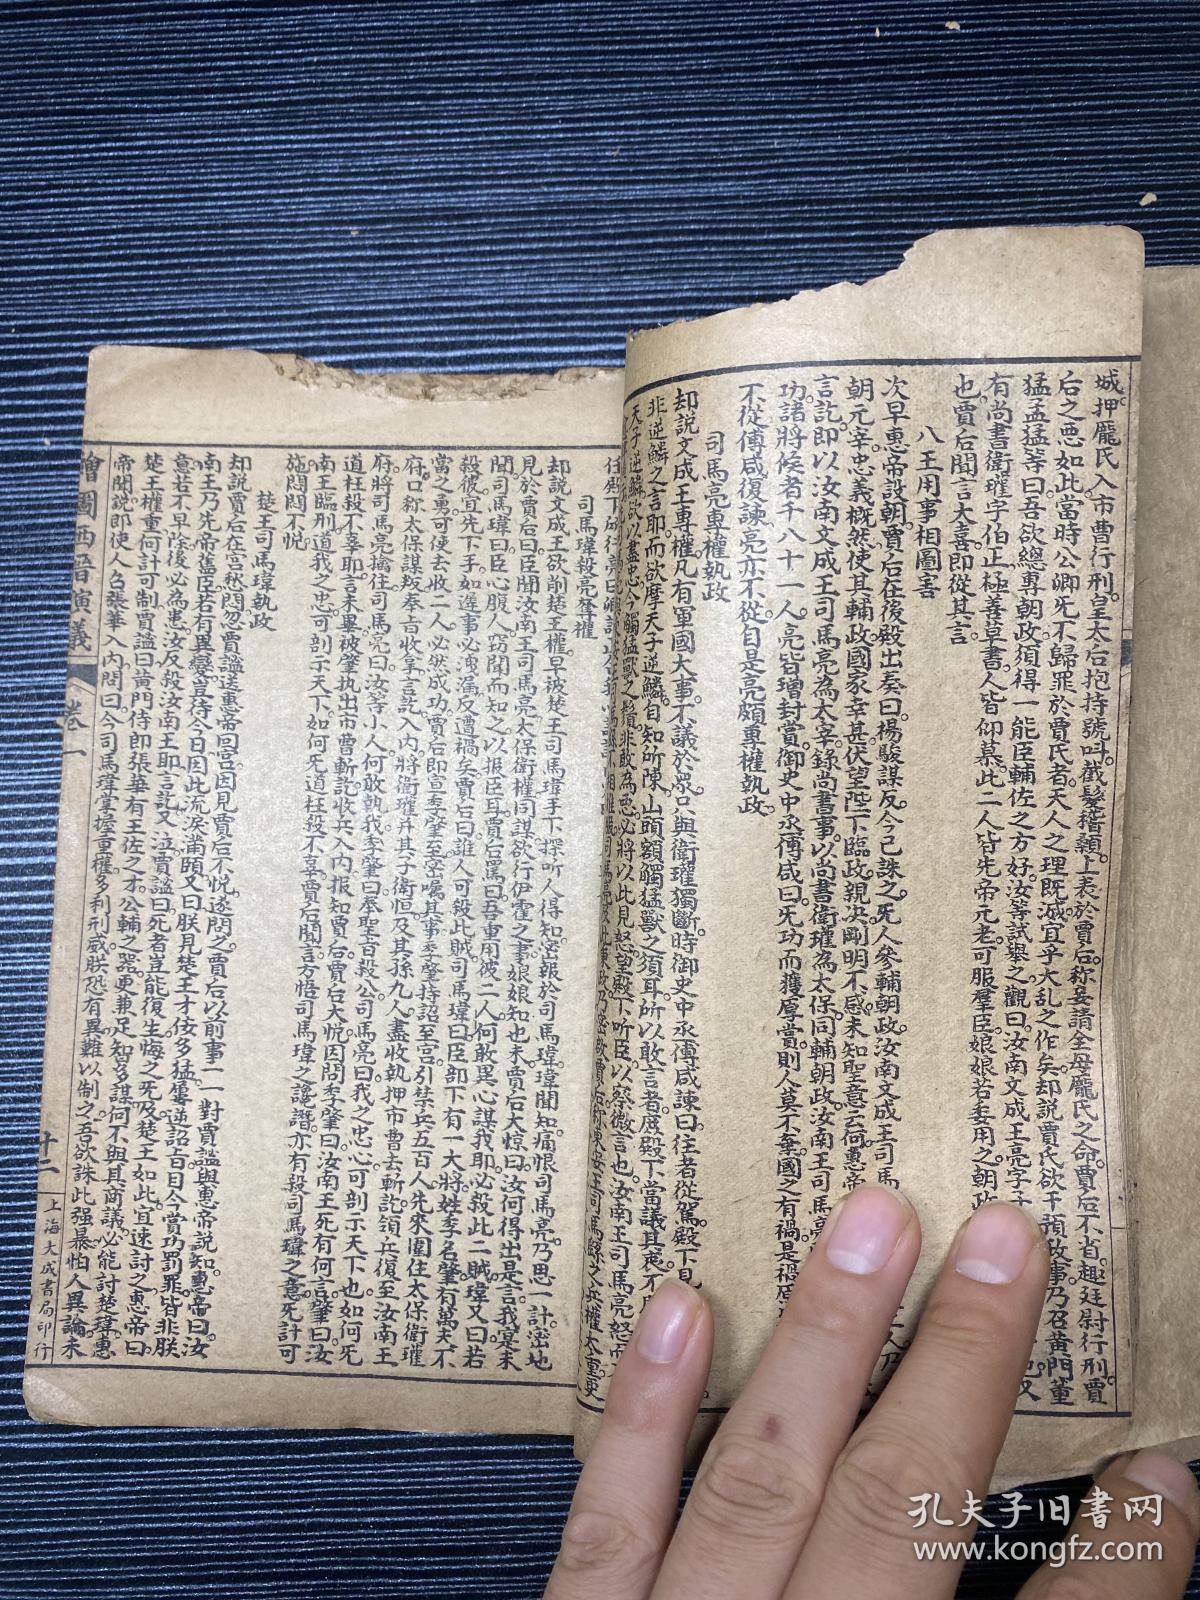 城押龐氏入市曹行刑皇太后抱持號叫截髮稽顙上表於賈后称妾請全母龐氏之命賈后不省趣廷尉行刑賈
后之惡如此當時公卿无不歸罪於賈氏者天人之理既滅宜乎大乱之作矣却說賈氏欲干預政事乃召黃門董
猛孟猛等曰吾欲總專朝政須得一能臣輔佐之方好汝等試舉之觀曰汝南文成王亮字子
有尚書衛瓘字伯玉極善草書人皆仰慕此二人皆先帝元老可服羣臣娘娘若委用之朝政
也賈后聞言大喜即從其言
八王用事相圖害
次早惠帝設朝賈后在後殿出奏曰楊駿謀反今已誅之无人參輔朝政汝南文成王司馬
朝元宰忠義慨然使其輔政國家幸甚伏望陛下臨政親决剛明不惑未知聖意云何惠帝
言訖即以汝南文成王司馬亮為太宰錄尚書事以尚書衛瓘為太保同輔朝政汝南王司馬亮
功諸將候者千八十一人亮皆增封賞御史中丞傅咸曰无功而獲厚賞則人莫不棄國之有禍是禍
不從傅咸復諫亮亦不從自是亮頗專權執政
司馬亮專權執政
却説文成王專權凡有軍國大事不議於眾只與衛瓘獨斷時御史中丞傅咸諫曰往者從駕殿下見
非逆鱗之言耶而欲摩天子逆鱗自知所陳山頭額觸猛獸之須耳所以敢言者庶殿下當議其衷不
天子逆鱗試以盡忠今觸猛獸之鬚非敢為惡必將以此見怒望殿下听臣以察微言也汝南王司馬亮怒而
司馬瑋殺亮奪權
却說文成王欲削楚王權早被楚王司馬瑋手下探听人得知密報於司馬瑋瑋聞知痛恨司馬亮乃思一計密地
見於賈后曰臣聞汝南王司馬亮太保衛權同謀欲行伊霍之事娘娘知也未賈后大惊曰汝何得出是言我寔未
聞司馬瑋曰臣心腹人窃聞而知之以报臣耳賈后罵曰吾重用彼二人何敢異心謀我耶必殺此二賊瑋又曰若
殺彼宜先下手如遲事必洩漏反遭禍矣賈后曰誰人可殺此賊司馬瑋曰臣部下有一大將姓李名肇有萬夫不
當之勇可便去收二人必然成功賈后即宣李肇至密嘱其事李肇持詔至宫引禁兵五百人先來圍住太保衛瓘
府口称太保謀叛奉旨收拿言訖入内將衛瓘并其子衛恒及其孫九人盡收執押市曹去斬訖領兵復至汝南王
府將司馬亮擒住司馬亮曰汝等小人何敢執我李肇曰奉聖旨殺公司馬亮曰我之忠心可剖示天下也如何无
道枉殺不辜耶言未畢被肇執出市曹斬訖收兵入内报知賈后賈后大悦因問李肇曰汝南王死有何言肇曰汝
南王臨刑道我之忠可剖示天下如何无道枉殺不辜賈后聞言方悟司馬瑋之讒譖亦有殺司馬瑋之意无計可
施悶悶不悦
楚王司馬瑋執政
却説賈后在宫愁悶忽賈謐送惠帝回宫因見賈后不悦遂問之賈后以前事一一對賈謐與惠帝説知惠帝曰汝
南王乃先帝舊臣若有異變豈待今日因此流泪滿頤又曰朕見楚王才佞多猛屢逆詔旨今賞功罰罪皆非朕
意若不早除後必為患汝反殺汝南王耶言訖又泣賈謐曰死者豈能復生悔之无及楚王如此宜速討之惠帝曰
楚王權重何計可制賈謐曰黃門侍郎張華有王佐之才公輔之器更兼足智多謀何不與其商議必能討楚瑋惠
帝聞説即使人召張華入内問曰今司馬瑋掌握重權多利刑威朕恐有異難以制之吾欲誅此强暴怕人異論未
繪圖西晋演義
卷一
十二
上海大成書局印行
孔夫子旧书网
www.kongfz.com